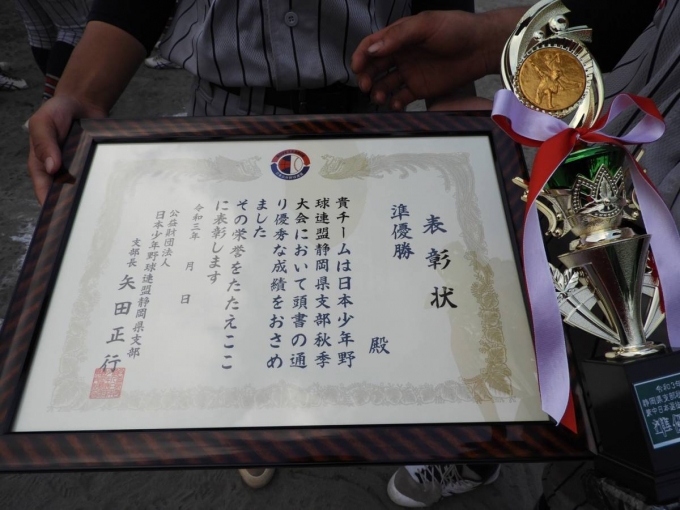 表彰状
準優勝
殿
貴チームは日本少年野
球連盟静岡県支部秋季
大会において頭書の通
り優秀な成績をおさめ
ました
その栄誉をたたえここ
に表彰します
令和三年 月 日
公益財団法人
日本少年野球連盟静岡県支部
支部長 矢田正行
令和3年
静岡県支部